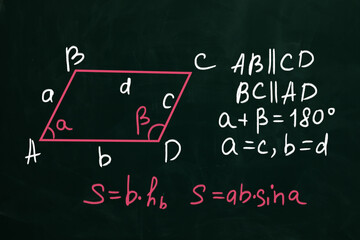 B
C
a
d
c
a
β
A
b
D
AB||CD
BC||AD
a+β=180°
a=c, b=d
S=b·h_b S=ab·sina